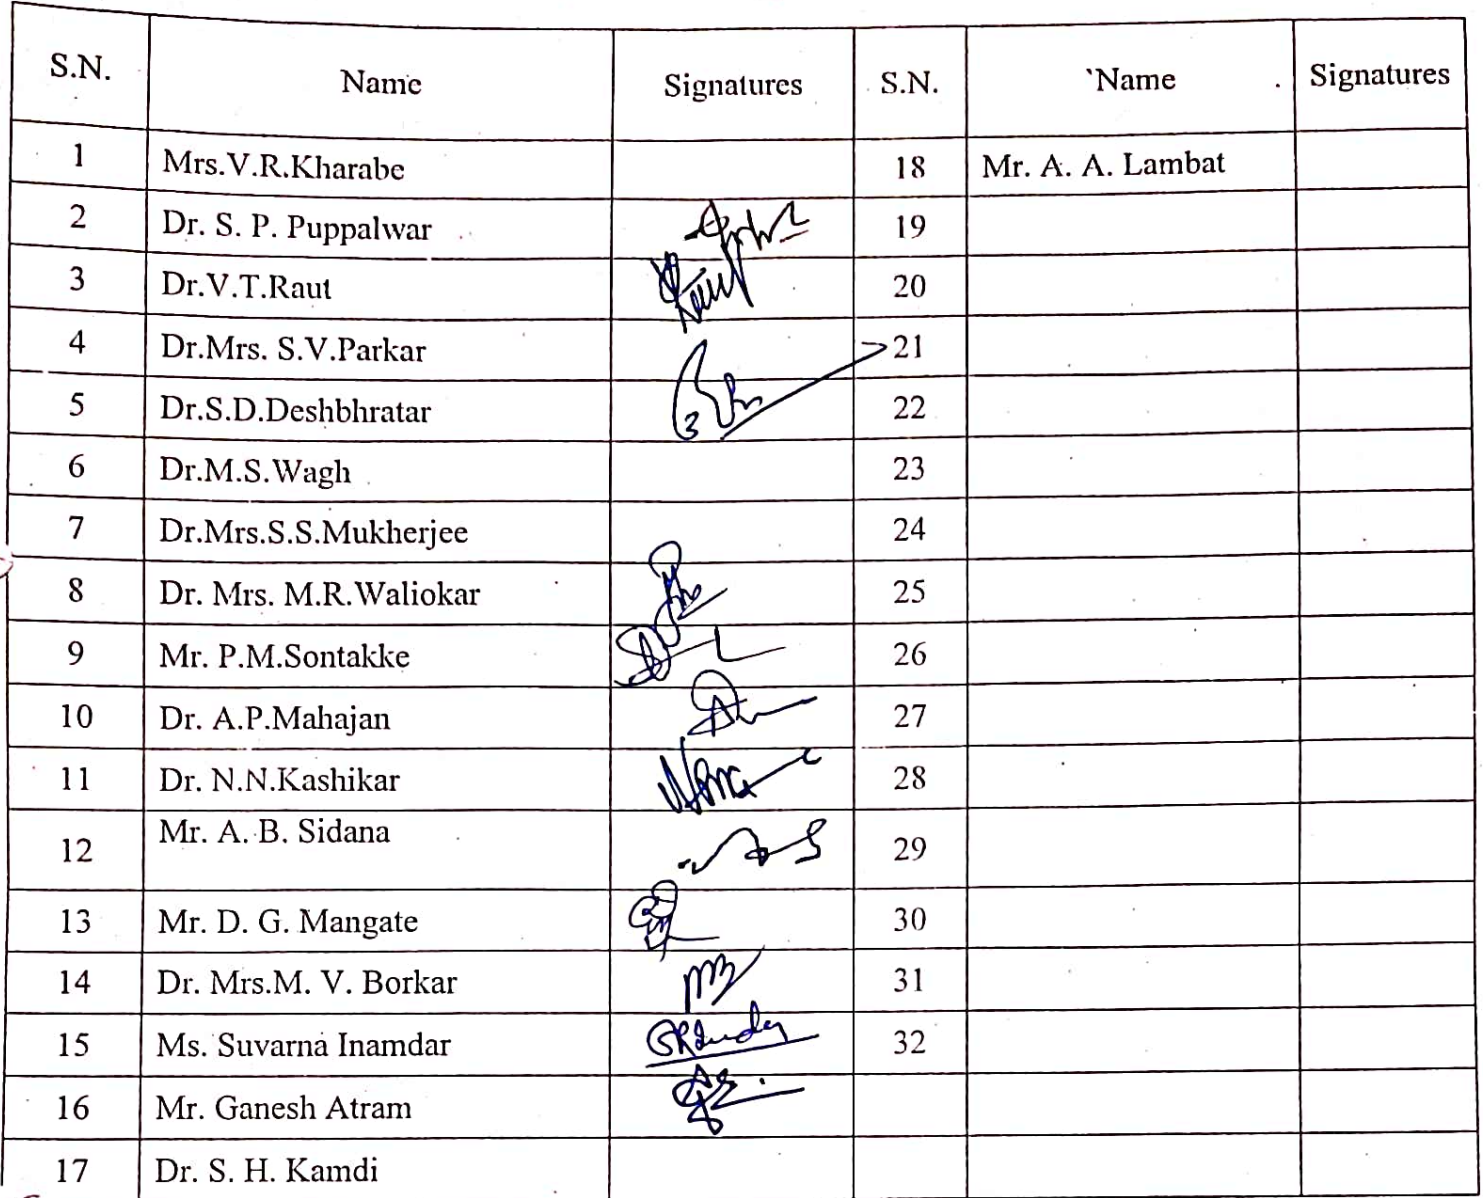 S.N. Name Signatures S.N. `Name Signatures
1 Mrs.V.R.Kharabe 18 Mr. A. A. Lambat
2 Dr. S. P. Puppalwar 19
3 Dr.V.T.Raut 20
4 Dr.Mrs. S.V.Parkar 21
5 Dr.S.D.Deshbhratar 22
6 Dr.M.S.Wagh 23
7 Dr.Mrs.S.S.Mukherjee 24
8 Dr. Mrs. M.R.Waliokar 25
9 Mr. P.M.Sontakke 26
10 Dr. A.P.Mahajan 27
11 Dr. N.N.Kashikar 28
12 Mr. A. B. Sidana 29
13 Mr. D. G. Mangate 30
14 Dr. Mrs.M. V. Borkar 31
15 Ms. Suvarna Inamdar 32
16 Mr. Ganesh Atram
17 Dr. S. H. Kamdi